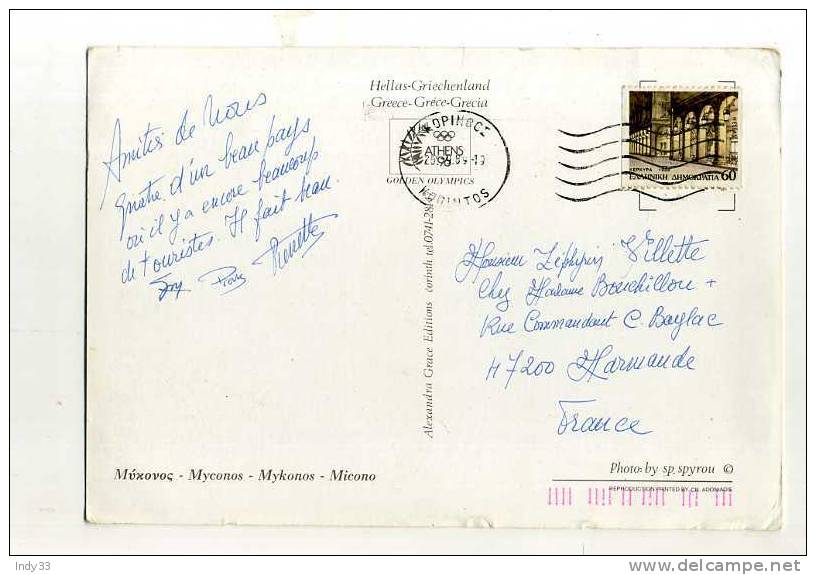 Hellas-Griechenland
Greece-Grèce-Grecia
ATHENS
96
GOLDEN OLYMPICS
ΕΛΛΗΝΙΚΗ ΔΗΜΟΚΡΑΤΙΑ 60
Amitiés de Nous
quatre d'un beau pays
où il y a encore beaucoup
de touristes. Il fait beau.
Alexandra Grace Editions corinth tel.0741-28
Monsieur Villette
Chez Madame Bouchillou +
Rue Commandant C. Baylac
47200 Marmande
France
Μύκονος - Myconos - Mykonos - Micono
Photo: by sp. spyrou ©
REPRODUCTION PRINTED BY CH. ADOMADIS
Indy33
delcampe.net